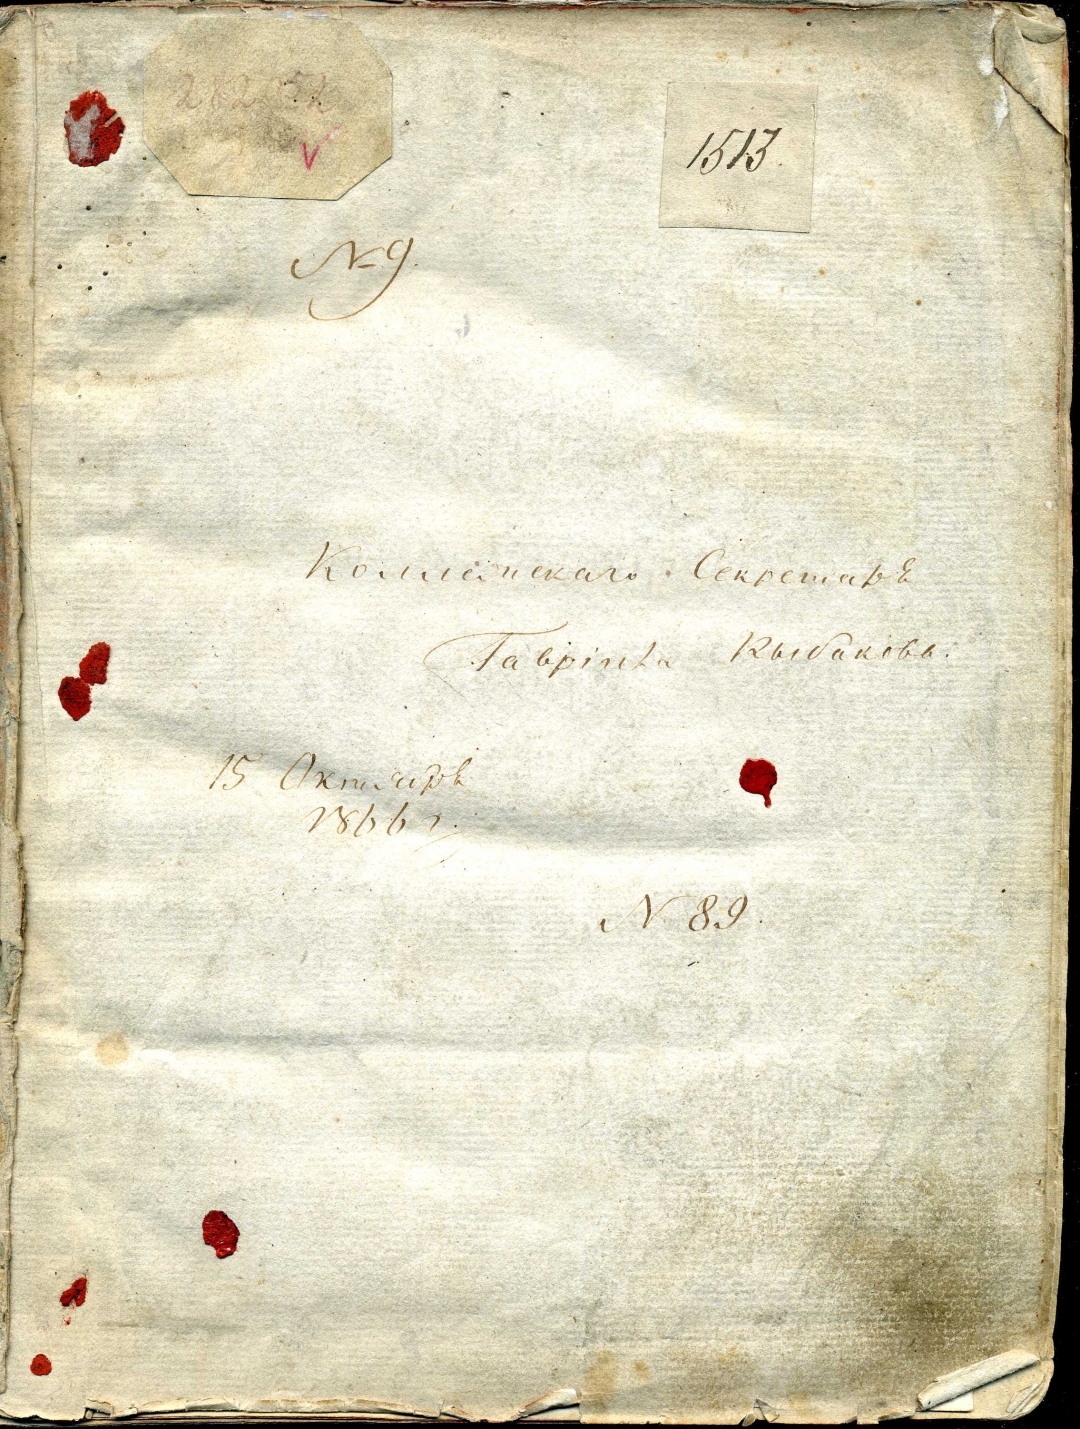 1513.
№ 9.
Коллежскаго Секретаря
Гавріила Рыбакова.
15 Октября
1866 г.
N 89.